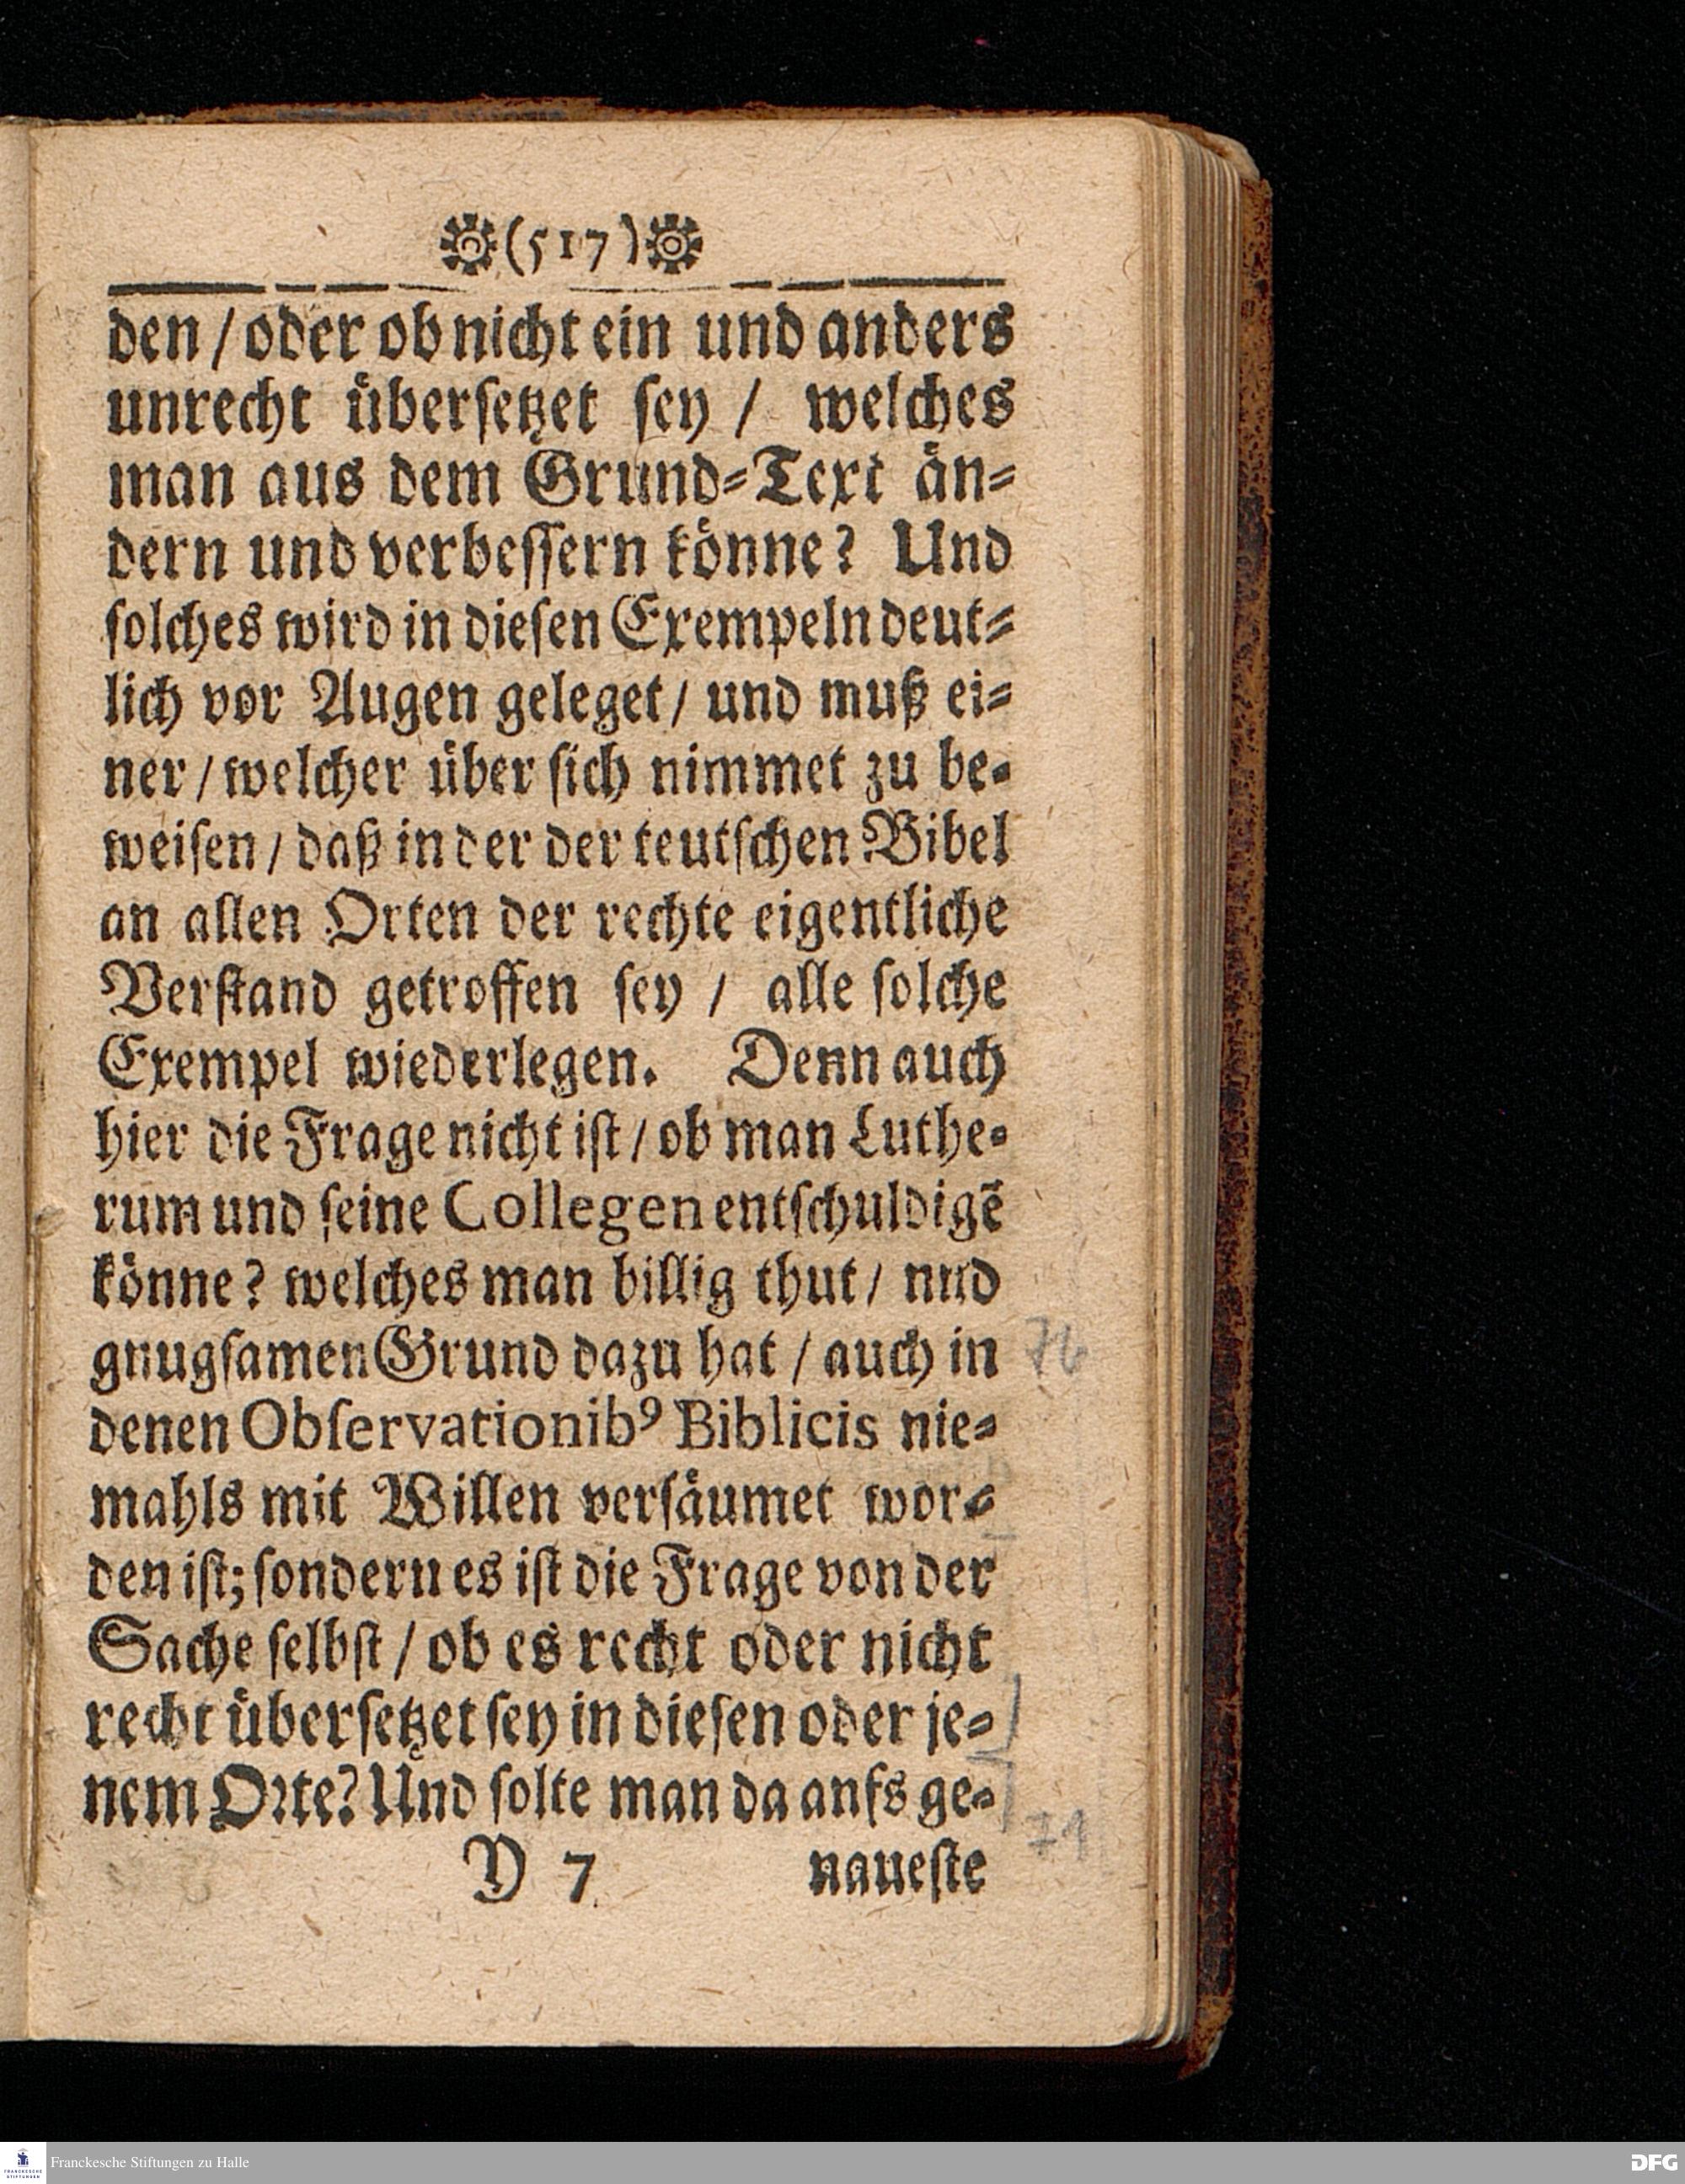 (517)
den / oder ob nicht ein und anders
unrecht übersetzet sey / welches
man aus dem Grund-Text än-
dern und verbessern könne? Und
solches wird in diesen Exempeln deut-
lich vor Augen geleget / und muß ei-
ner / welcher über sich nimmet zu be-
weisen / daß in der der teutschen Bibel
an allen Orten der rechte eigentliche
Verstand getroffen sey / alle solche
Exempel wiederlegen. Denn auch
hier die Frage nicht ist / ob man Luthe-
rum und seine Collegen entschuldigē
könne? welches man billig thut / nnd
gnugsamen Grund dazu hat / auch in
76
denen Observationibꝰ Biblicis nie-
mahls mit Willen versäumet wor-
den ist; sondern es ist die Frage von der
Sache selbst / ob es recht oder nicht
recht übersetzet sey in diesen oder je-
nem Orte? Und solte man da anfs ge-
71
Y 7 naueste
FRANCKESCHE STIFTUNGEN
Franckesche Stiftungen zu Halle
DFG